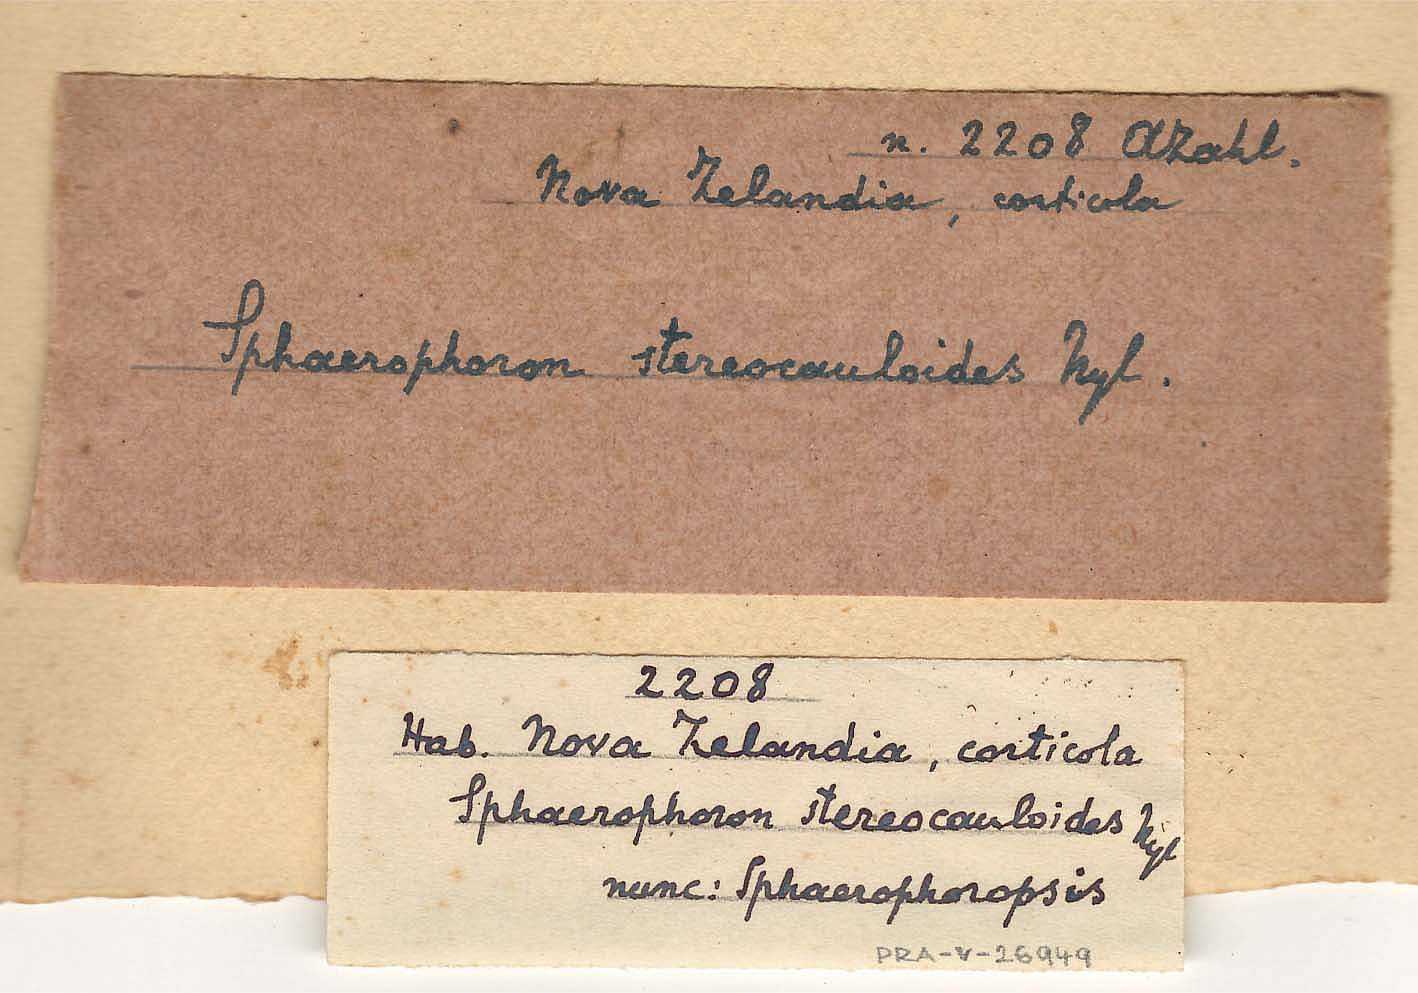 n. 2208 AZahl.
Nova Zelandia, corticola
Sphaerophoron stereocauloides Nyl.
2208
Hab. Nova Zelandia, corticola
Sphaerophoron stereocauloides Nyl
nunc: Sphaerophoropsis
PRA-V-26949